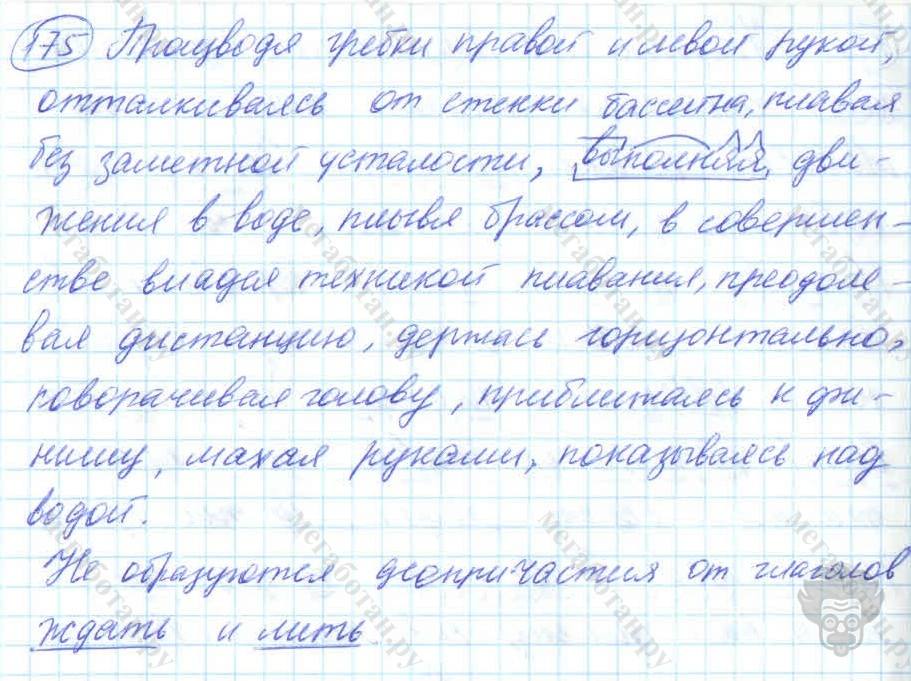 175 Производя гребки правой и левой рукой,
отталкиваясь от стенки бассейна, плавая
без заметной усталости, выполняя дви-
жения в воде, плывя брассом, в совершен-
стве владея техникой плавания, преодоле-
вая дистанцию, держась горизонтально,
поворачивая голову, приближаясь к фи-
нишу, махая руками, показываясь над
водой.
Не образуются деепричастия от глаголов
ждать и лить
мегаботан.ру